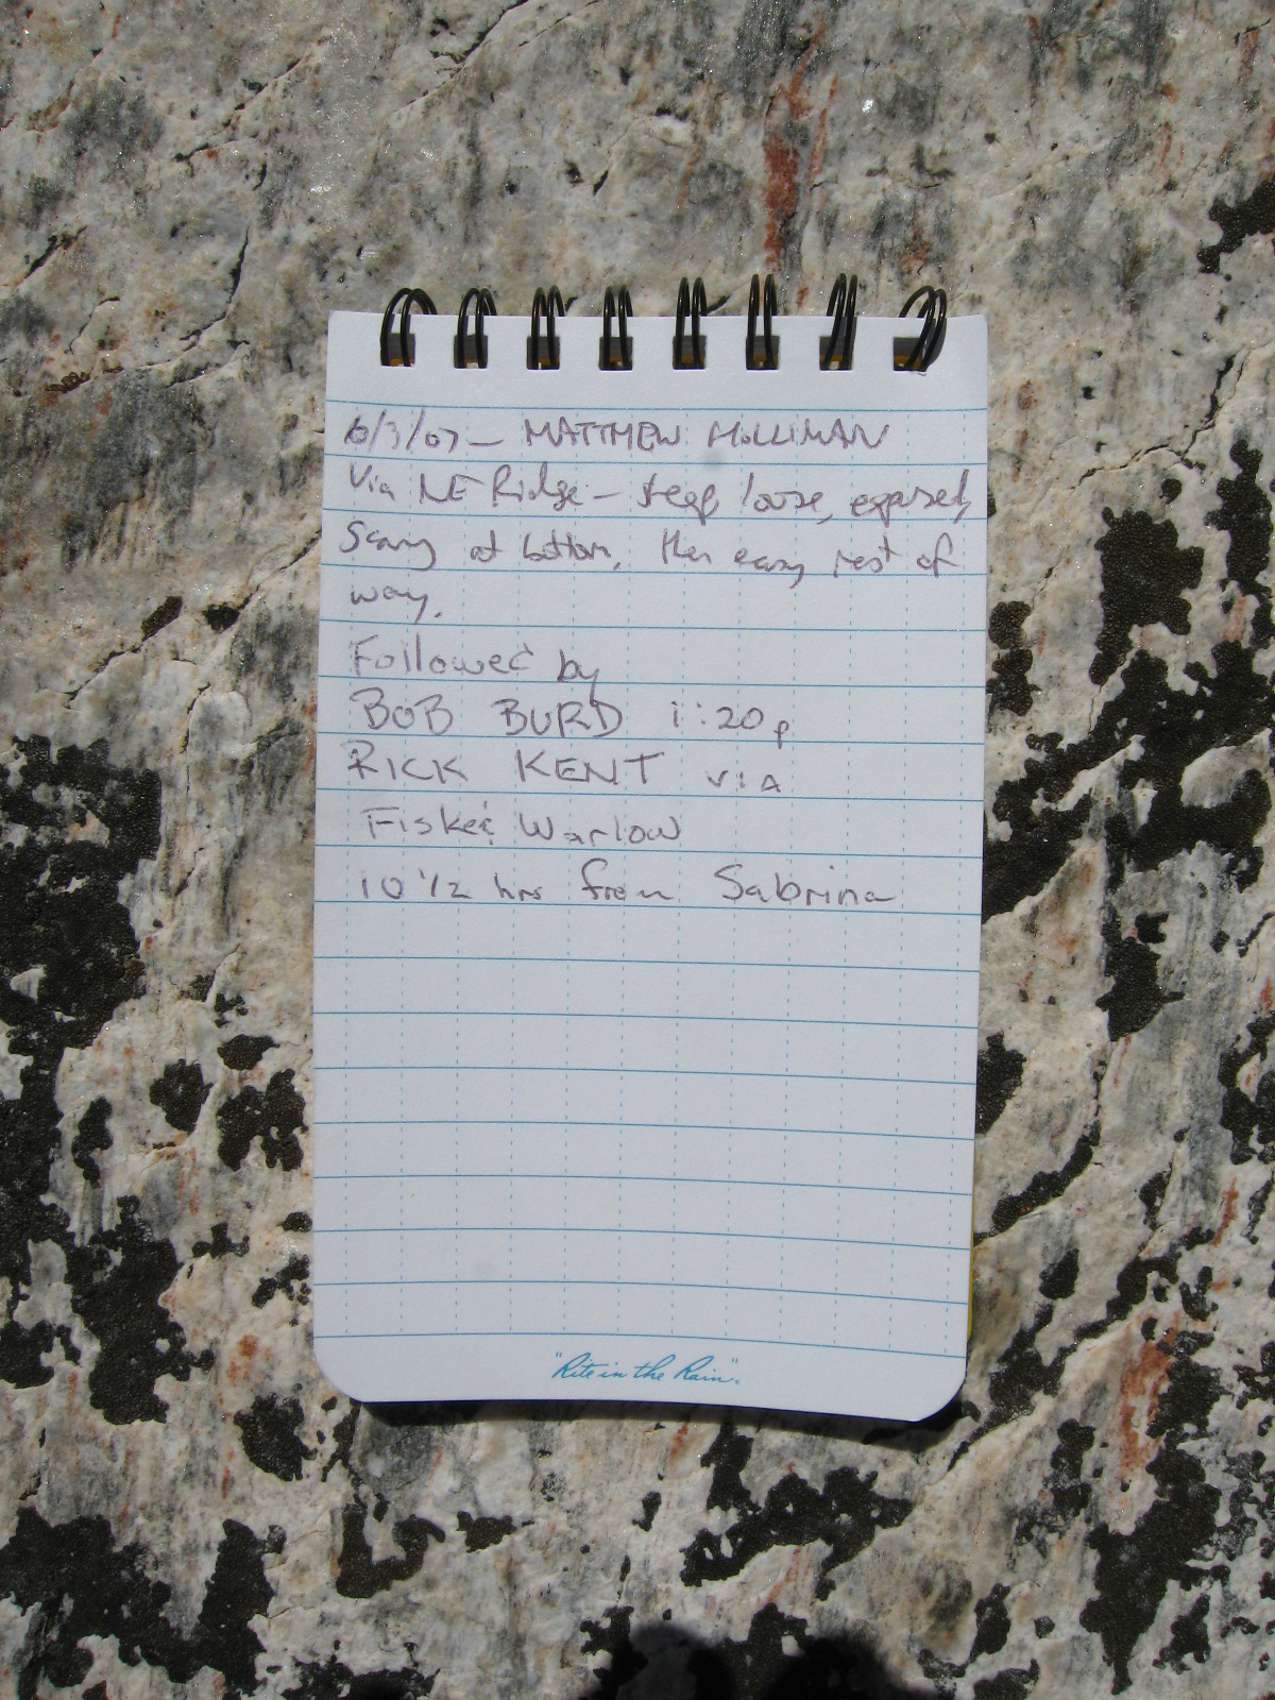 6/3/07 - MATTHEW HOLLIMAN
Via NE Ridge - steep, loose, exposed,
Scary at bottom, then easy rest of
way.
Followed by
BOB BURD 1:20p
RICK KENT VIA
Fiske & Warlow
10 1/2 hrs from Sabrina
"Rite in the Rain".